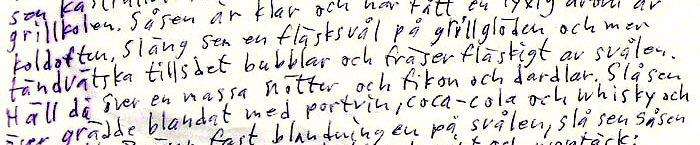 son
grillkolen. Såsen är klar och har fått en lyxig arom av
koldoften. Släng sen en fläsksvål på grillglöden och mer
tändvätska tills det bubblar och fräser fläskigt av svålen.
Häll då över en massa nötter och fikon och dardlar. Slå sen
grädde blandat med portvin, coca-cola och whisky och
fast blandningen på svålen, slå sen såsen